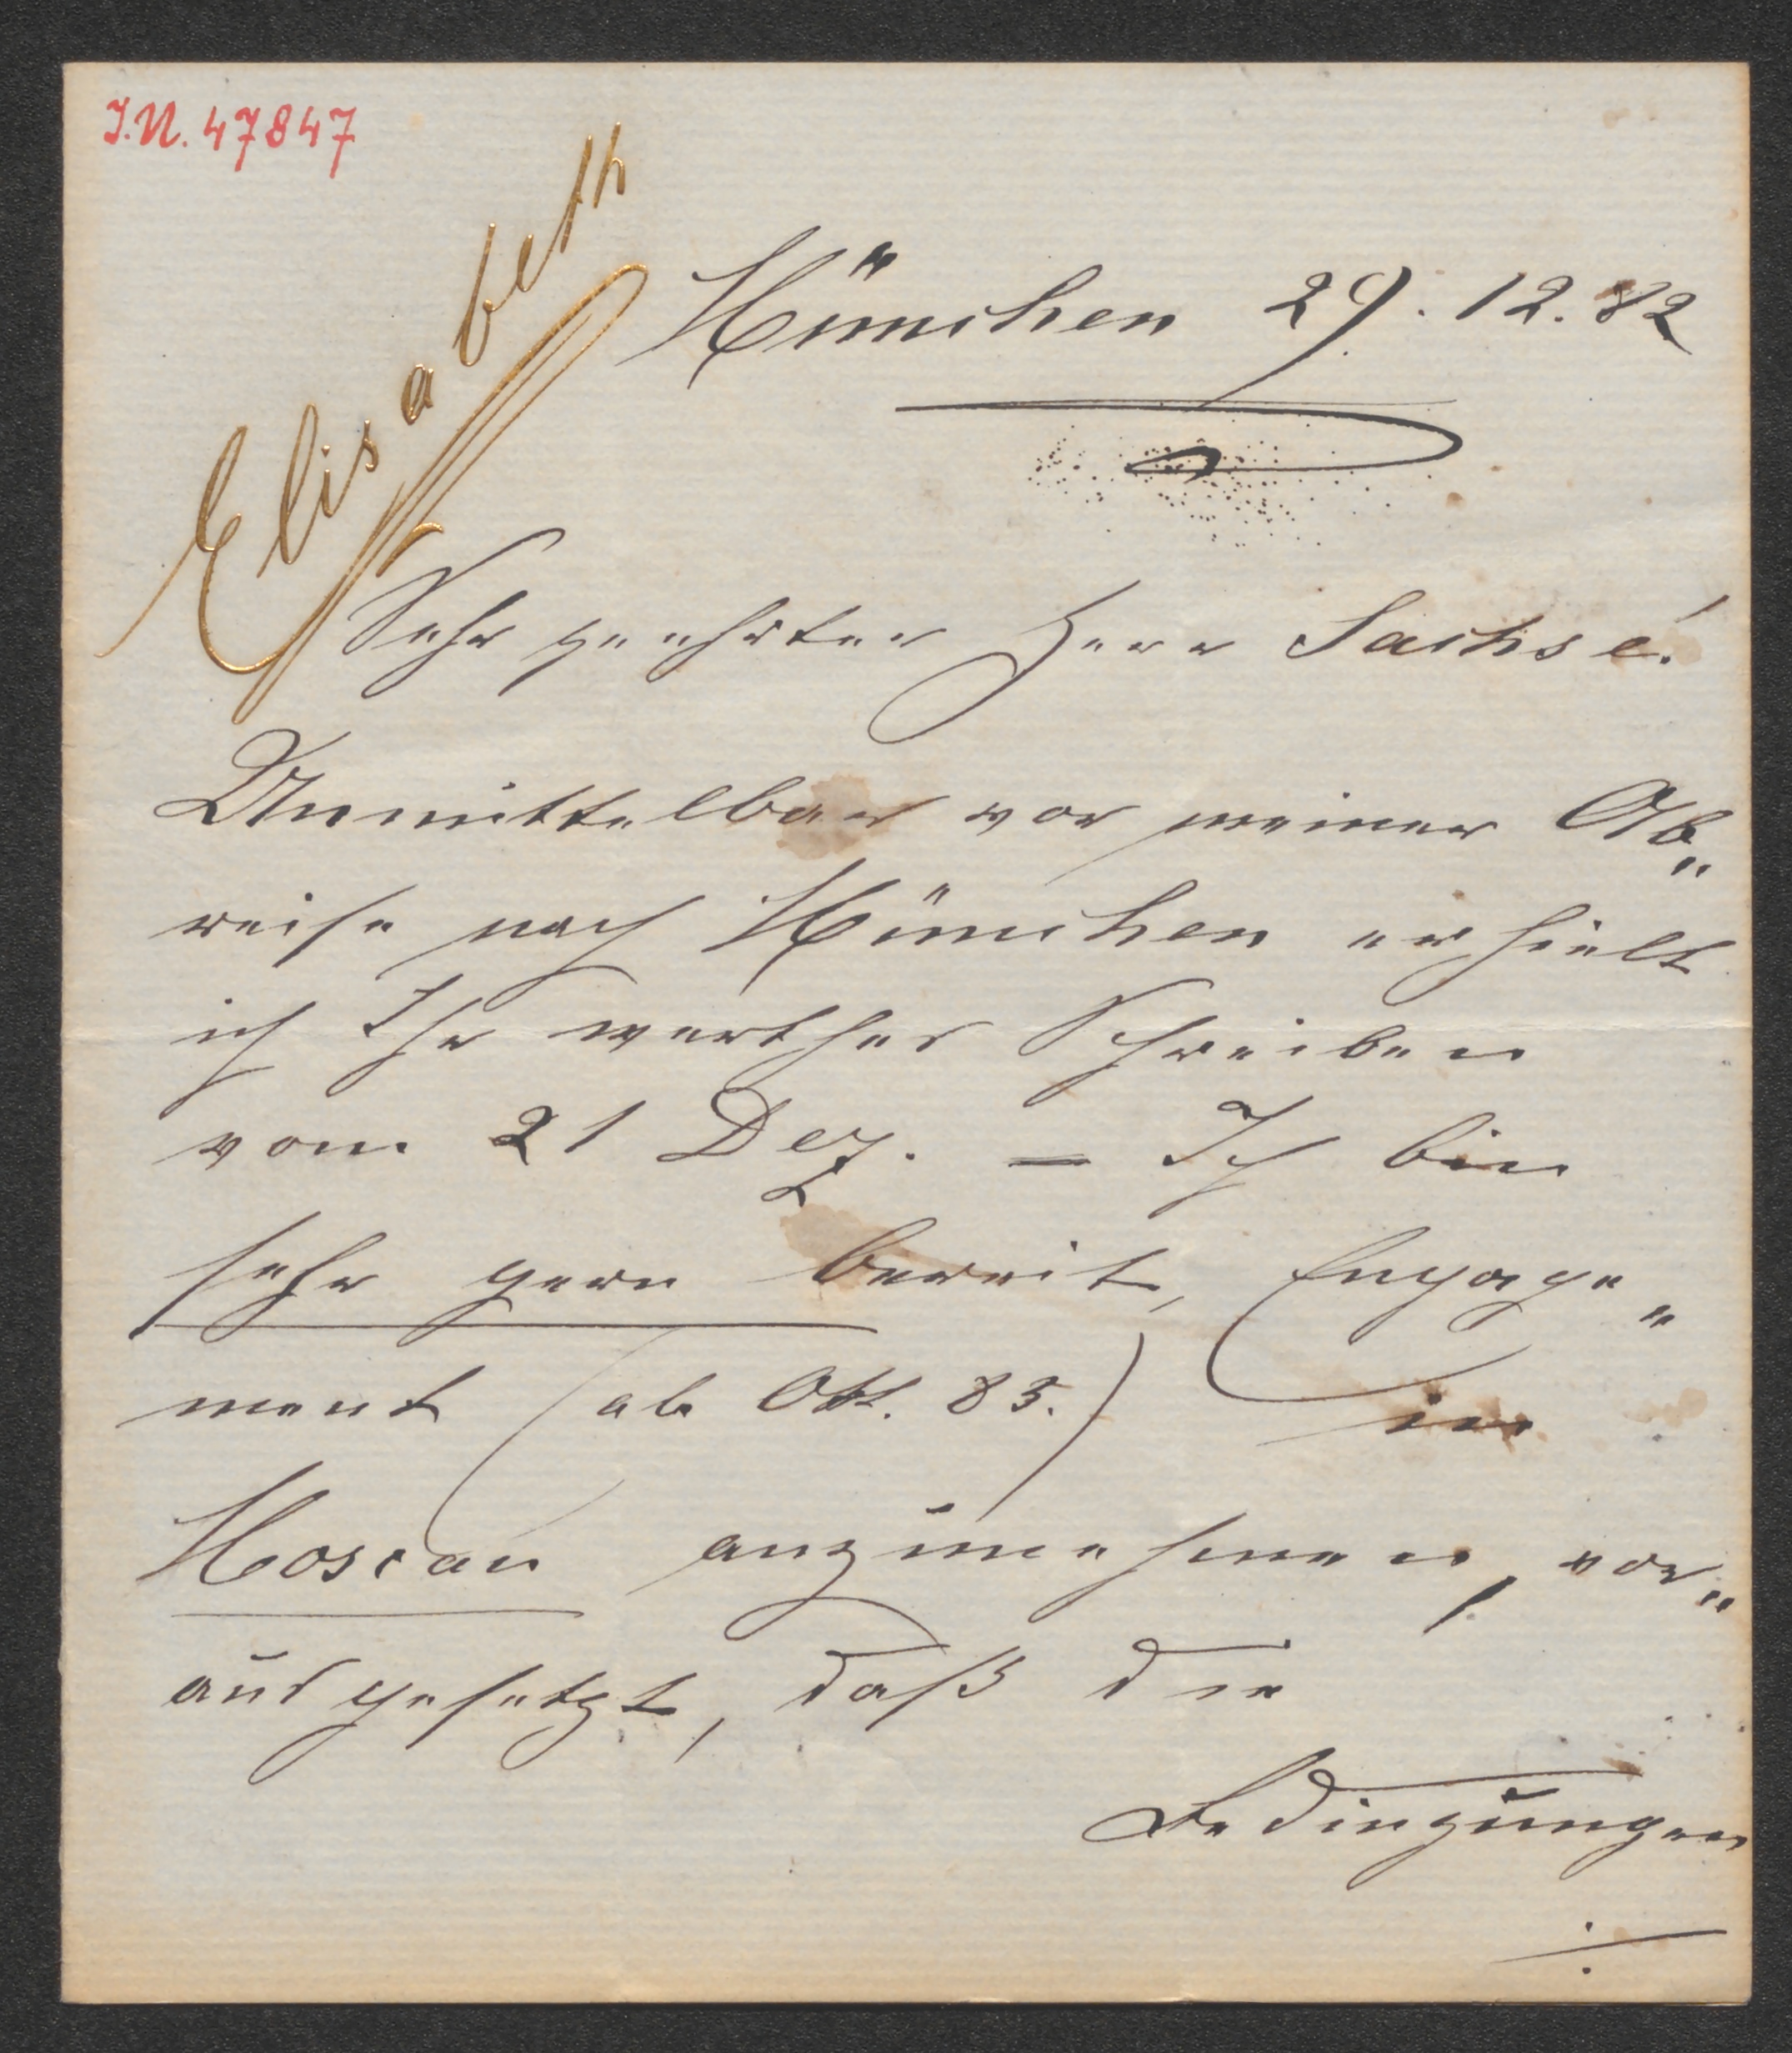 I.N. 47847
Elisabeth
München 29. 12. 82
Sehr geehrter Herr Sachse!
Unmittelbar vor meiner Ab„
reise nach München erhielt
ich Ihr werthes Schreiben
vom 21 Dez. – Ich bin
sehr gern bereit, Engage„
ment (ab Okt. 83.) in
Moscau anzunehmen, vor„
ausgesetzt, daß die
Bedingungen
./.